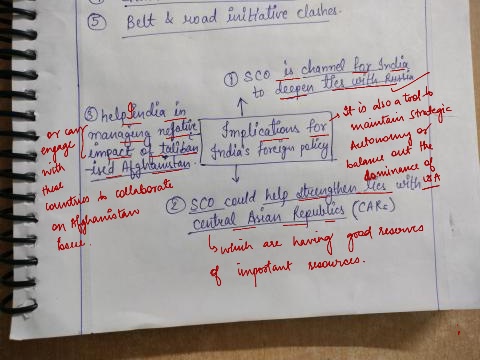 ⑤ Belt & road initiative clashes.
① SCO is channel for India
to deepen ties with Russia
③ help India in
managing negative
impact of taliban
ised Afghanistan.
or can
engage
with
these
countries to collaborate
on Afghanistan
issue.
Implications for
India's foreign policy
It is also a tool to
maintain strategic
Autonomy or
balance out the
dominance of
USA
② SCO could help strengthen ties with
central Asian Republics (CARs)
which are having good reserves
of important resources.